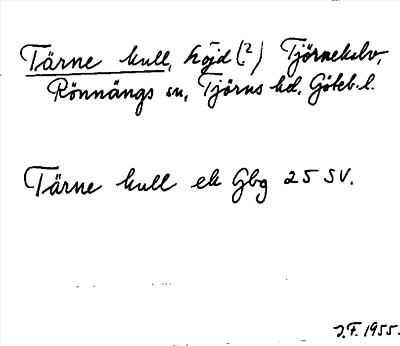 Tärne kull, höjd (?) Tjörnekalv,
Rönnängs sn, Tjörns hd, Göteb. l.
Tärne kull ek Gbg 25 SV.
J.F. 1955.